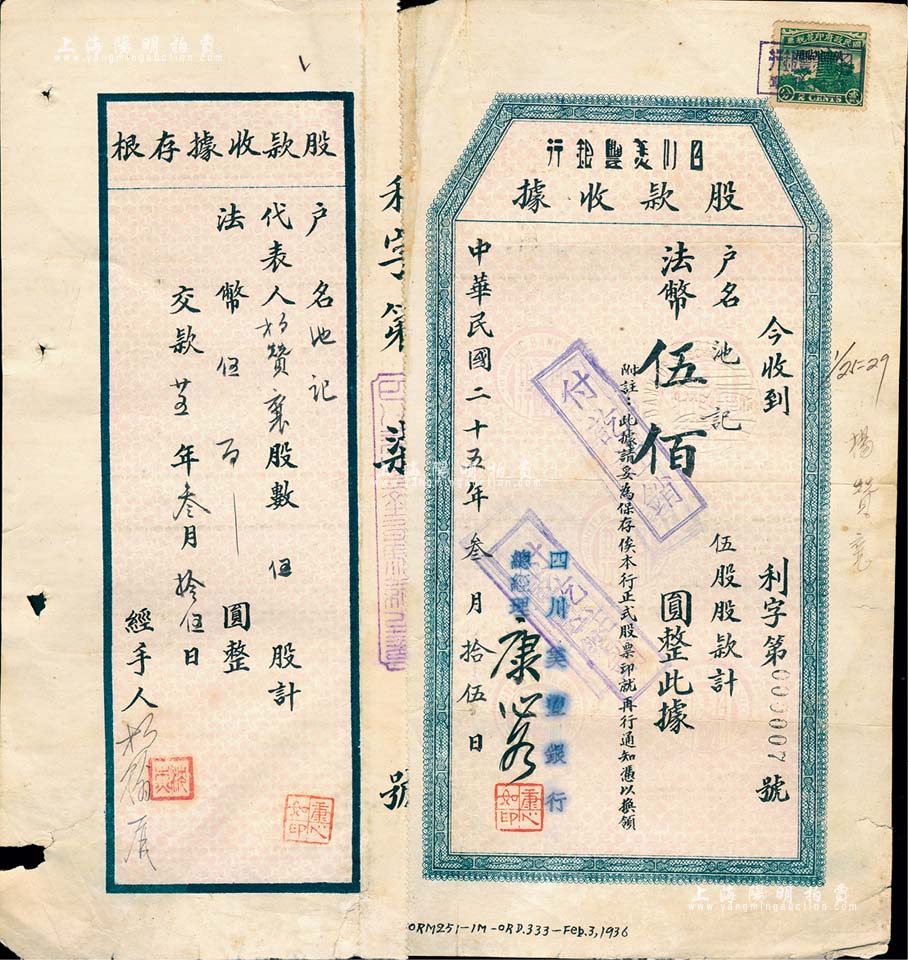 上海陽明拍賣
www.yangmingauction.com
國民政府印花稅票
2 CENTS
四川美豐銀行
股款收據
今收到
利字第000007號
户名池記
伍股股款計
法幣伍佰圓整此據
附註：此據請妥為保存俟本行正式股票印就再行通知憑以換領
四川美豐銀行
總經理
康心如
康心如印
中華民國二十五年叁月拾伍日
付訖
註銷
1/25-29
楊贊襄
利字第柒號
股款收據存根
户名池記
代表人楊贊襄股數伍股計
法幣伍百圓整
交款廿五年叁月拾伍日
經手人
康心如印
ORM251-1M-ORD.333-Feb.3,1936
上海陽明拍賣
www.yangmingauction.com